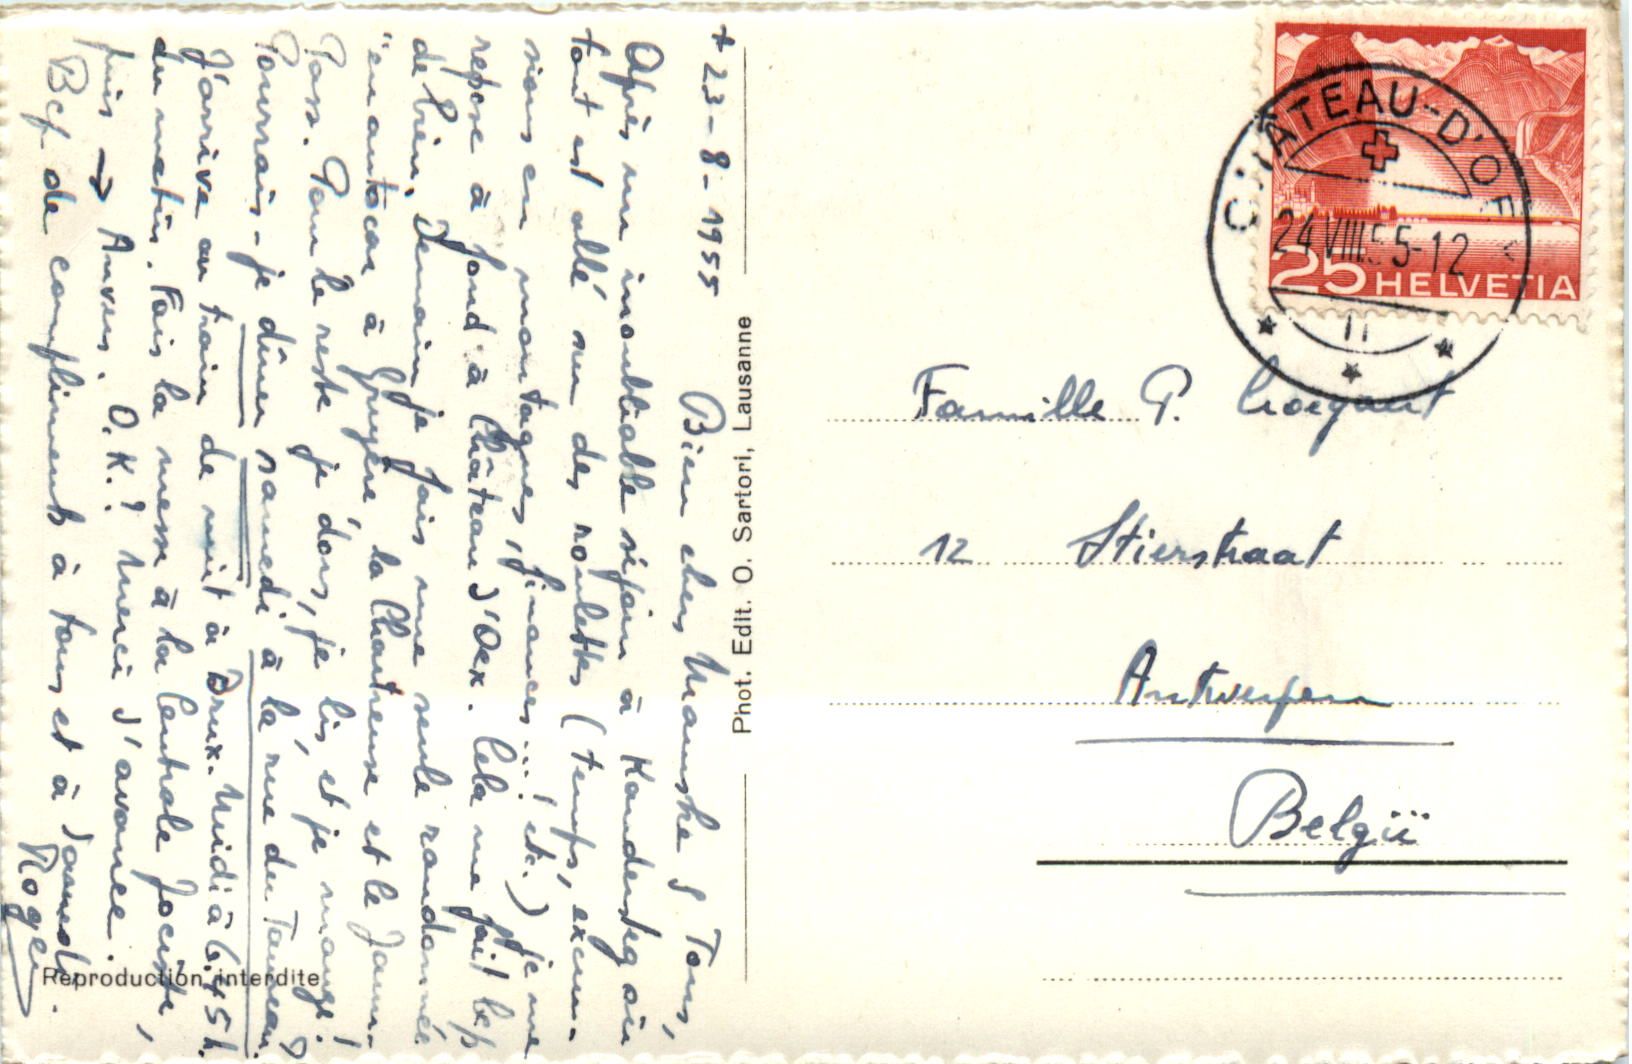 + 23-8-1955
Bien chers Mamske & Tous,
Après un inoubliable séjour à Kandersteg où
tout est allé sur des roulettes (temps, excur-
sions en montagnes, finances...! etc.) je me
repose à fond à Château d'Oex. Cela me fait bcp
de bien. Demain je fais une seule randonnée
"en autocar à Gruyère, la Chartreuse et le Jaun-
Pass. Pour le reste je dors, je lis, et je mange!
Pourrais-je dîner samedi à la rue du Taureau?
J'arrive au train de nuit à Brux. Midi à 6.45 h.
du matin. Fais la messe à la Centrale Jociste,
puis → Anvers. O.K.? Merci d'avance.
Bcp de compliments à tous et à samedi.
Roger
Phot. Edit. O. Sartori, Lausanne
Reproduction interdite
CHÂTEAU-D'OEX
24.VIII.55-12
25 HELVETIA
Famille P.
12 Stierstraat
Antwerpen
België